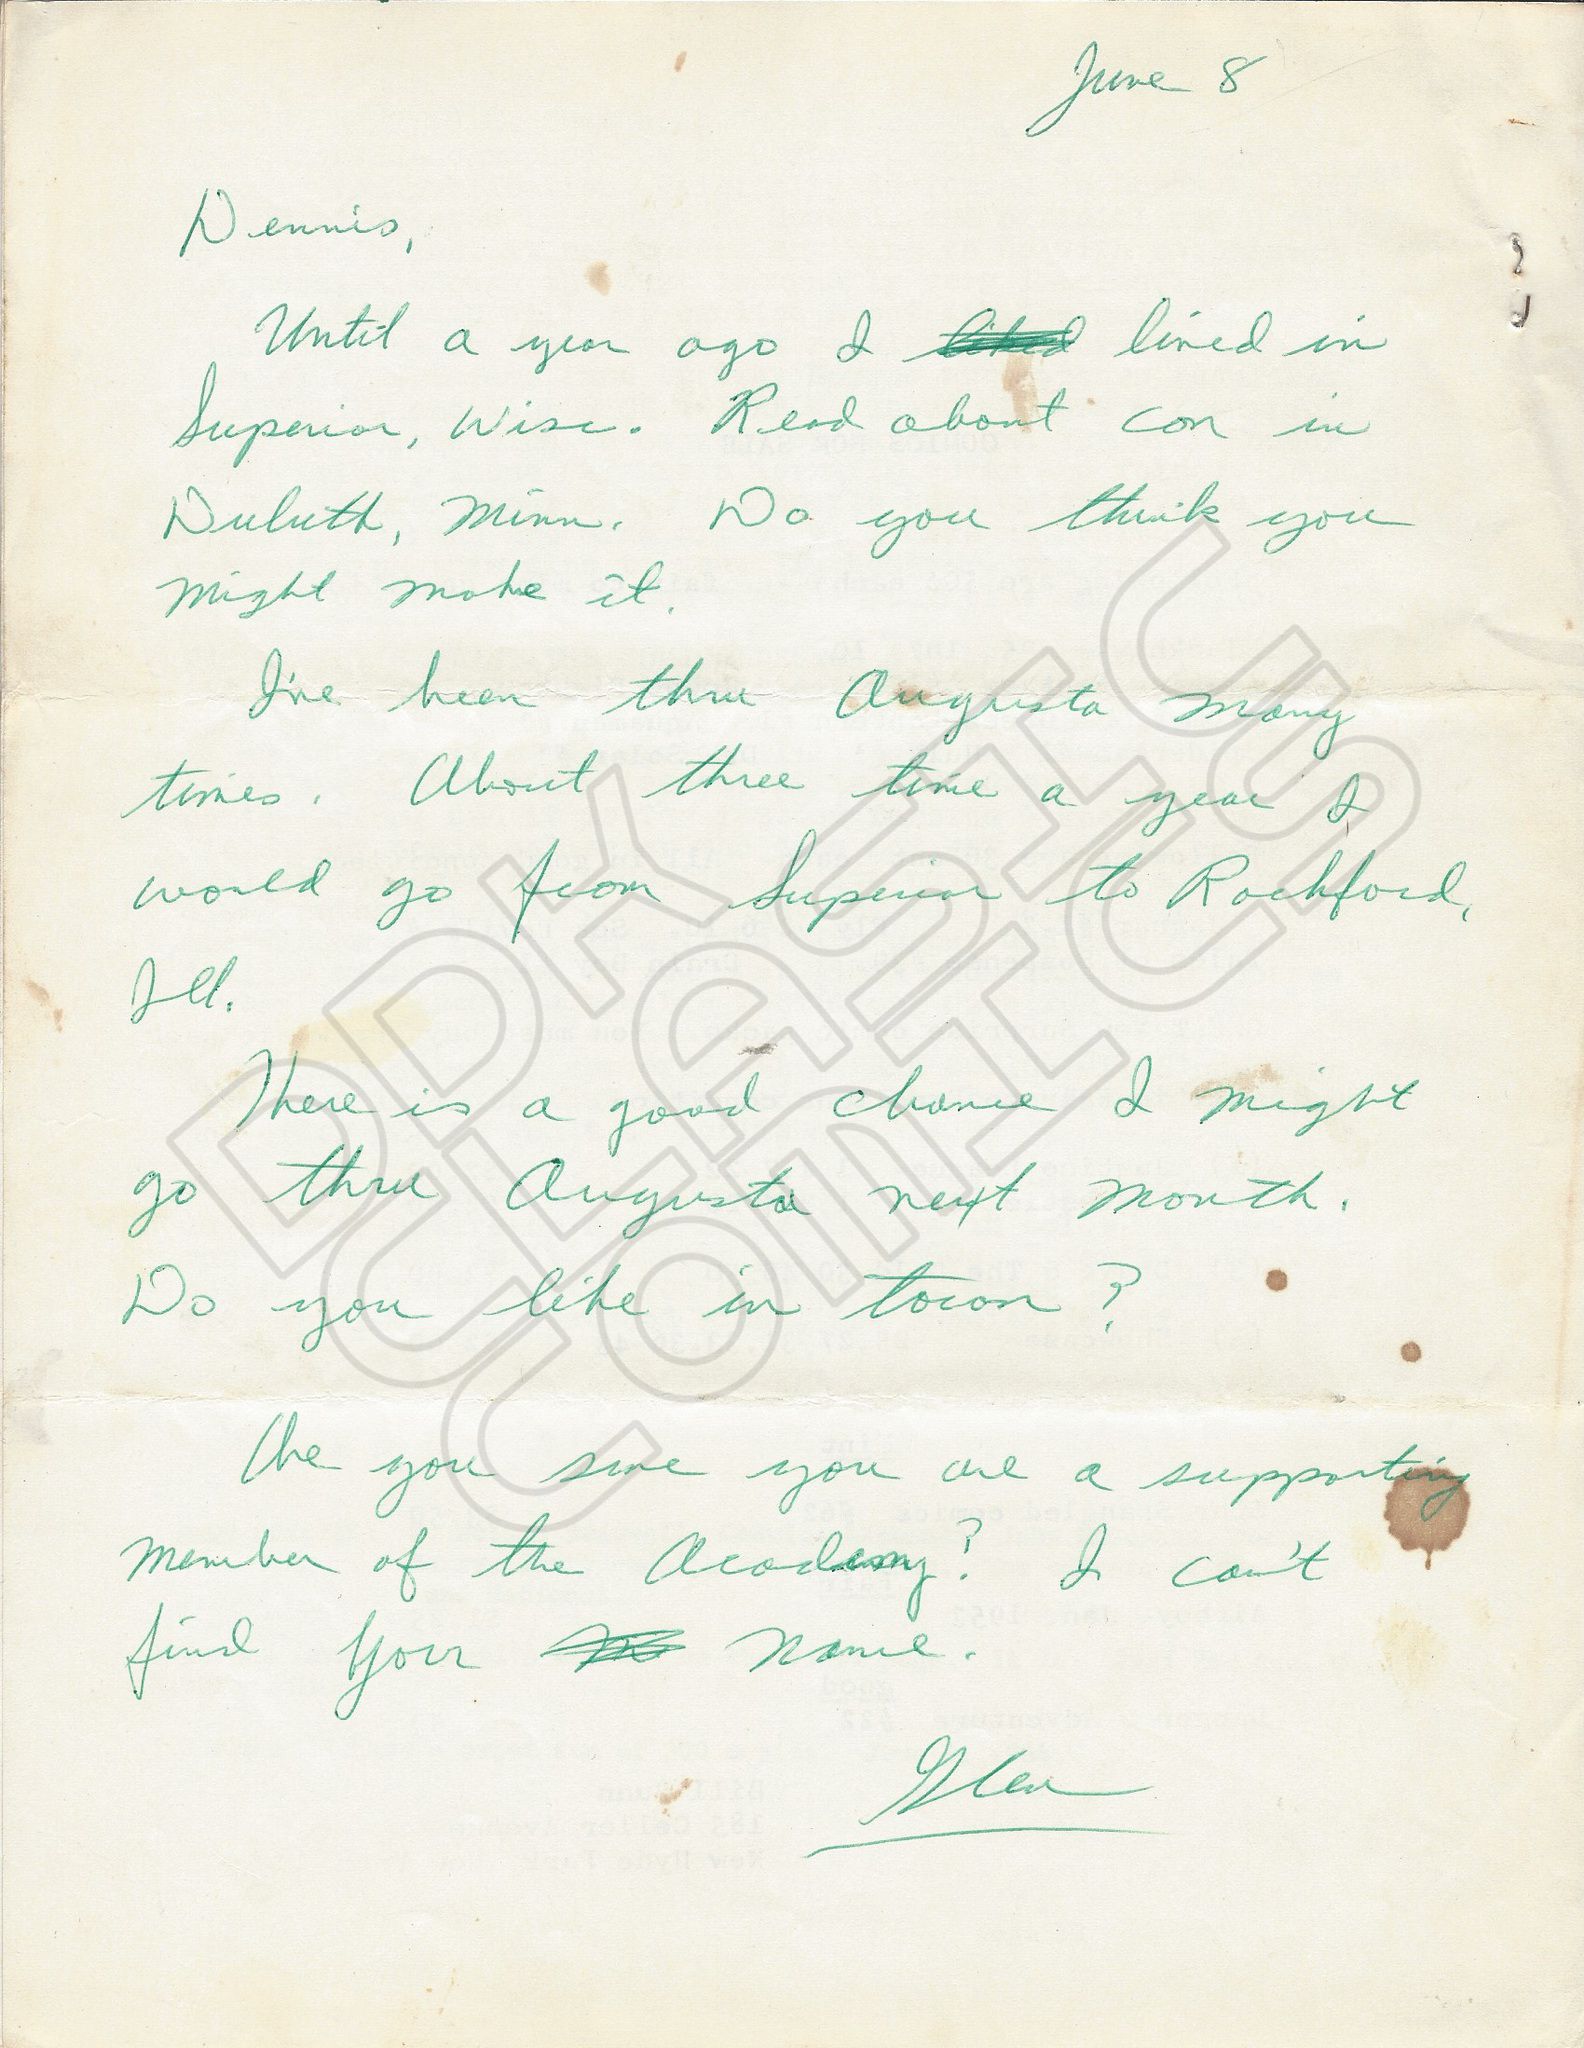 June 8
Dennis,
Until a year ago I liked lived in
Superior, Wisc. Read about con in
Duluth, Minn. Do you think you
might make it.
I've been thru Augusta many
times. About three time a year I
would go from Superior to Rockford,
Ill.
There is a good chance I might
go thru Augusta next month.
Do you like in town?
Are you sure you are a supporting
member of the Academy? I can't
find your name.
Glen
DDK CLASSIC COMICS